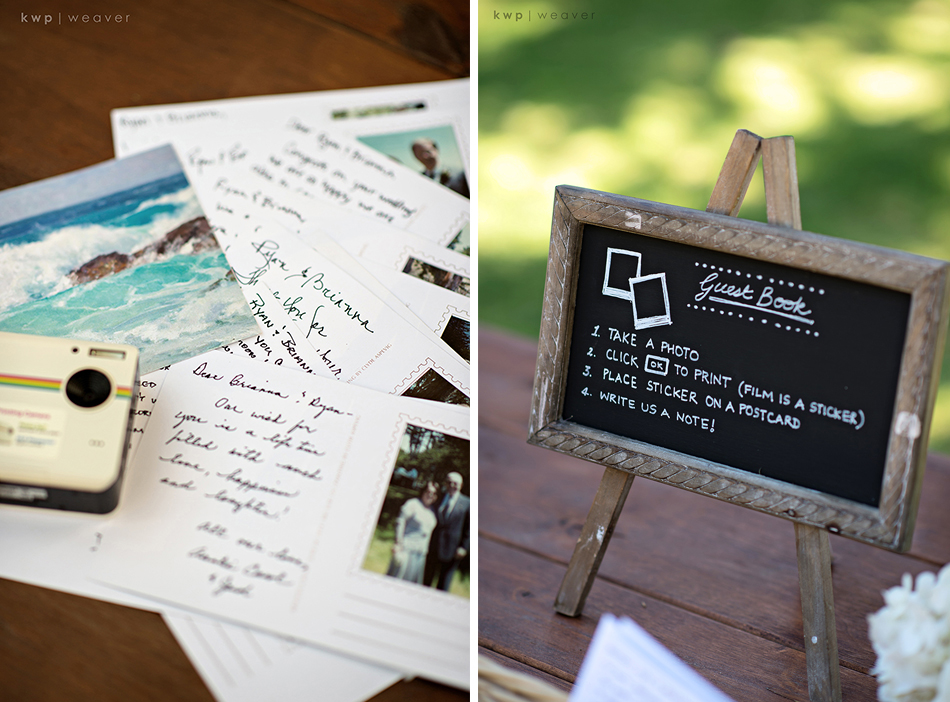 kwp | weaver
Ryan & Brianna,
Dear Ryan & Brianna
Congrats on your wedding
we are so happy
Ryan & Brianna,
Ryan & Brianna
love for
RYAN & BRIANNA
Dear Brianna & Ryan-
Our wish for
you is a lifetime
filled with much
love, happiness
and laughter!
All our love,
& Josh
kwp | weaver
Guest Book
1. TAKE A PHOTO
2. CLICK OK TO PRINT (FILM IS A STICKER)
3. PLACE STICKER ON A POSTCARD
4. WRITE US A NOTE!